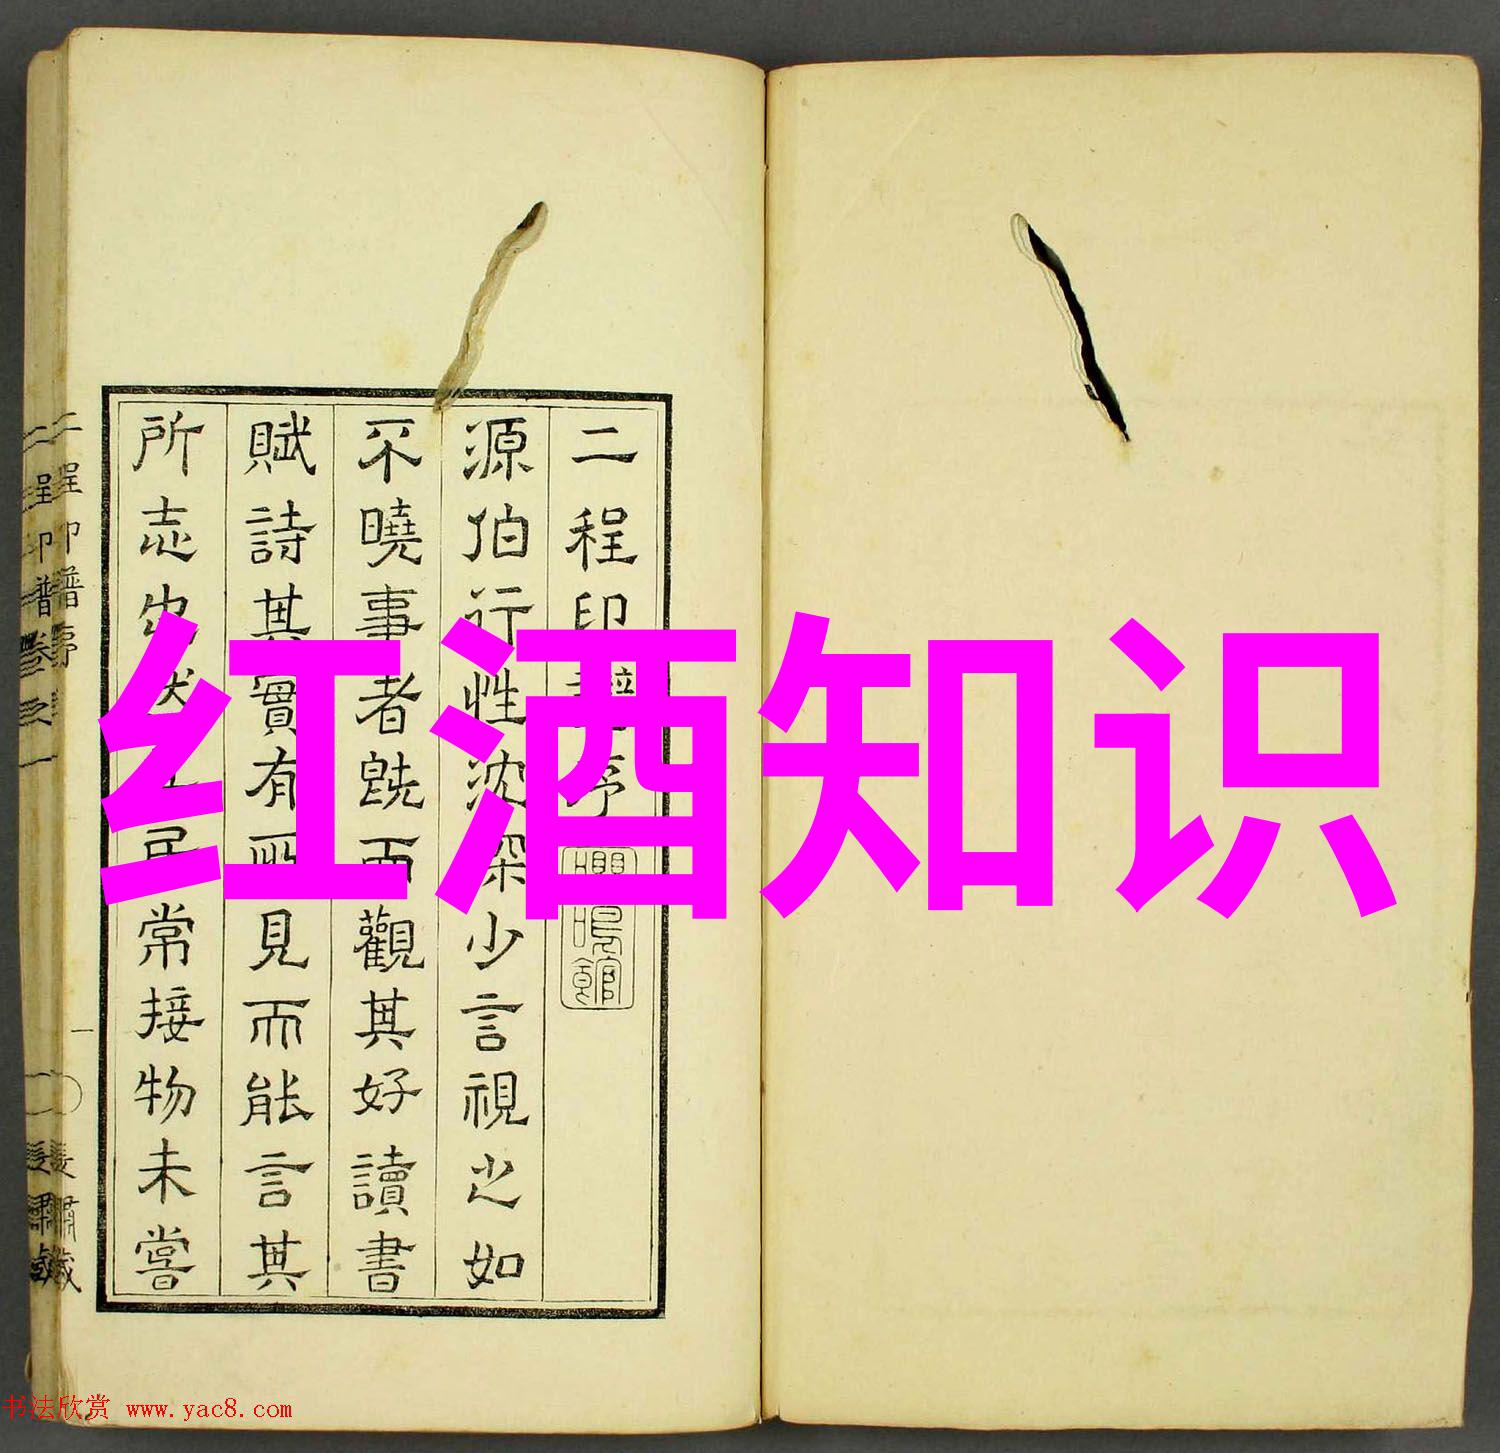 二程印譜序
源伯行性沈深少言視之如
不曉事者旣而觀其好讀書
賦詩其實有所見而能言其
所志也然 居常接物未嘗
紅酒知识
二程印譜序
一
書法欣赏 www.yac8.com